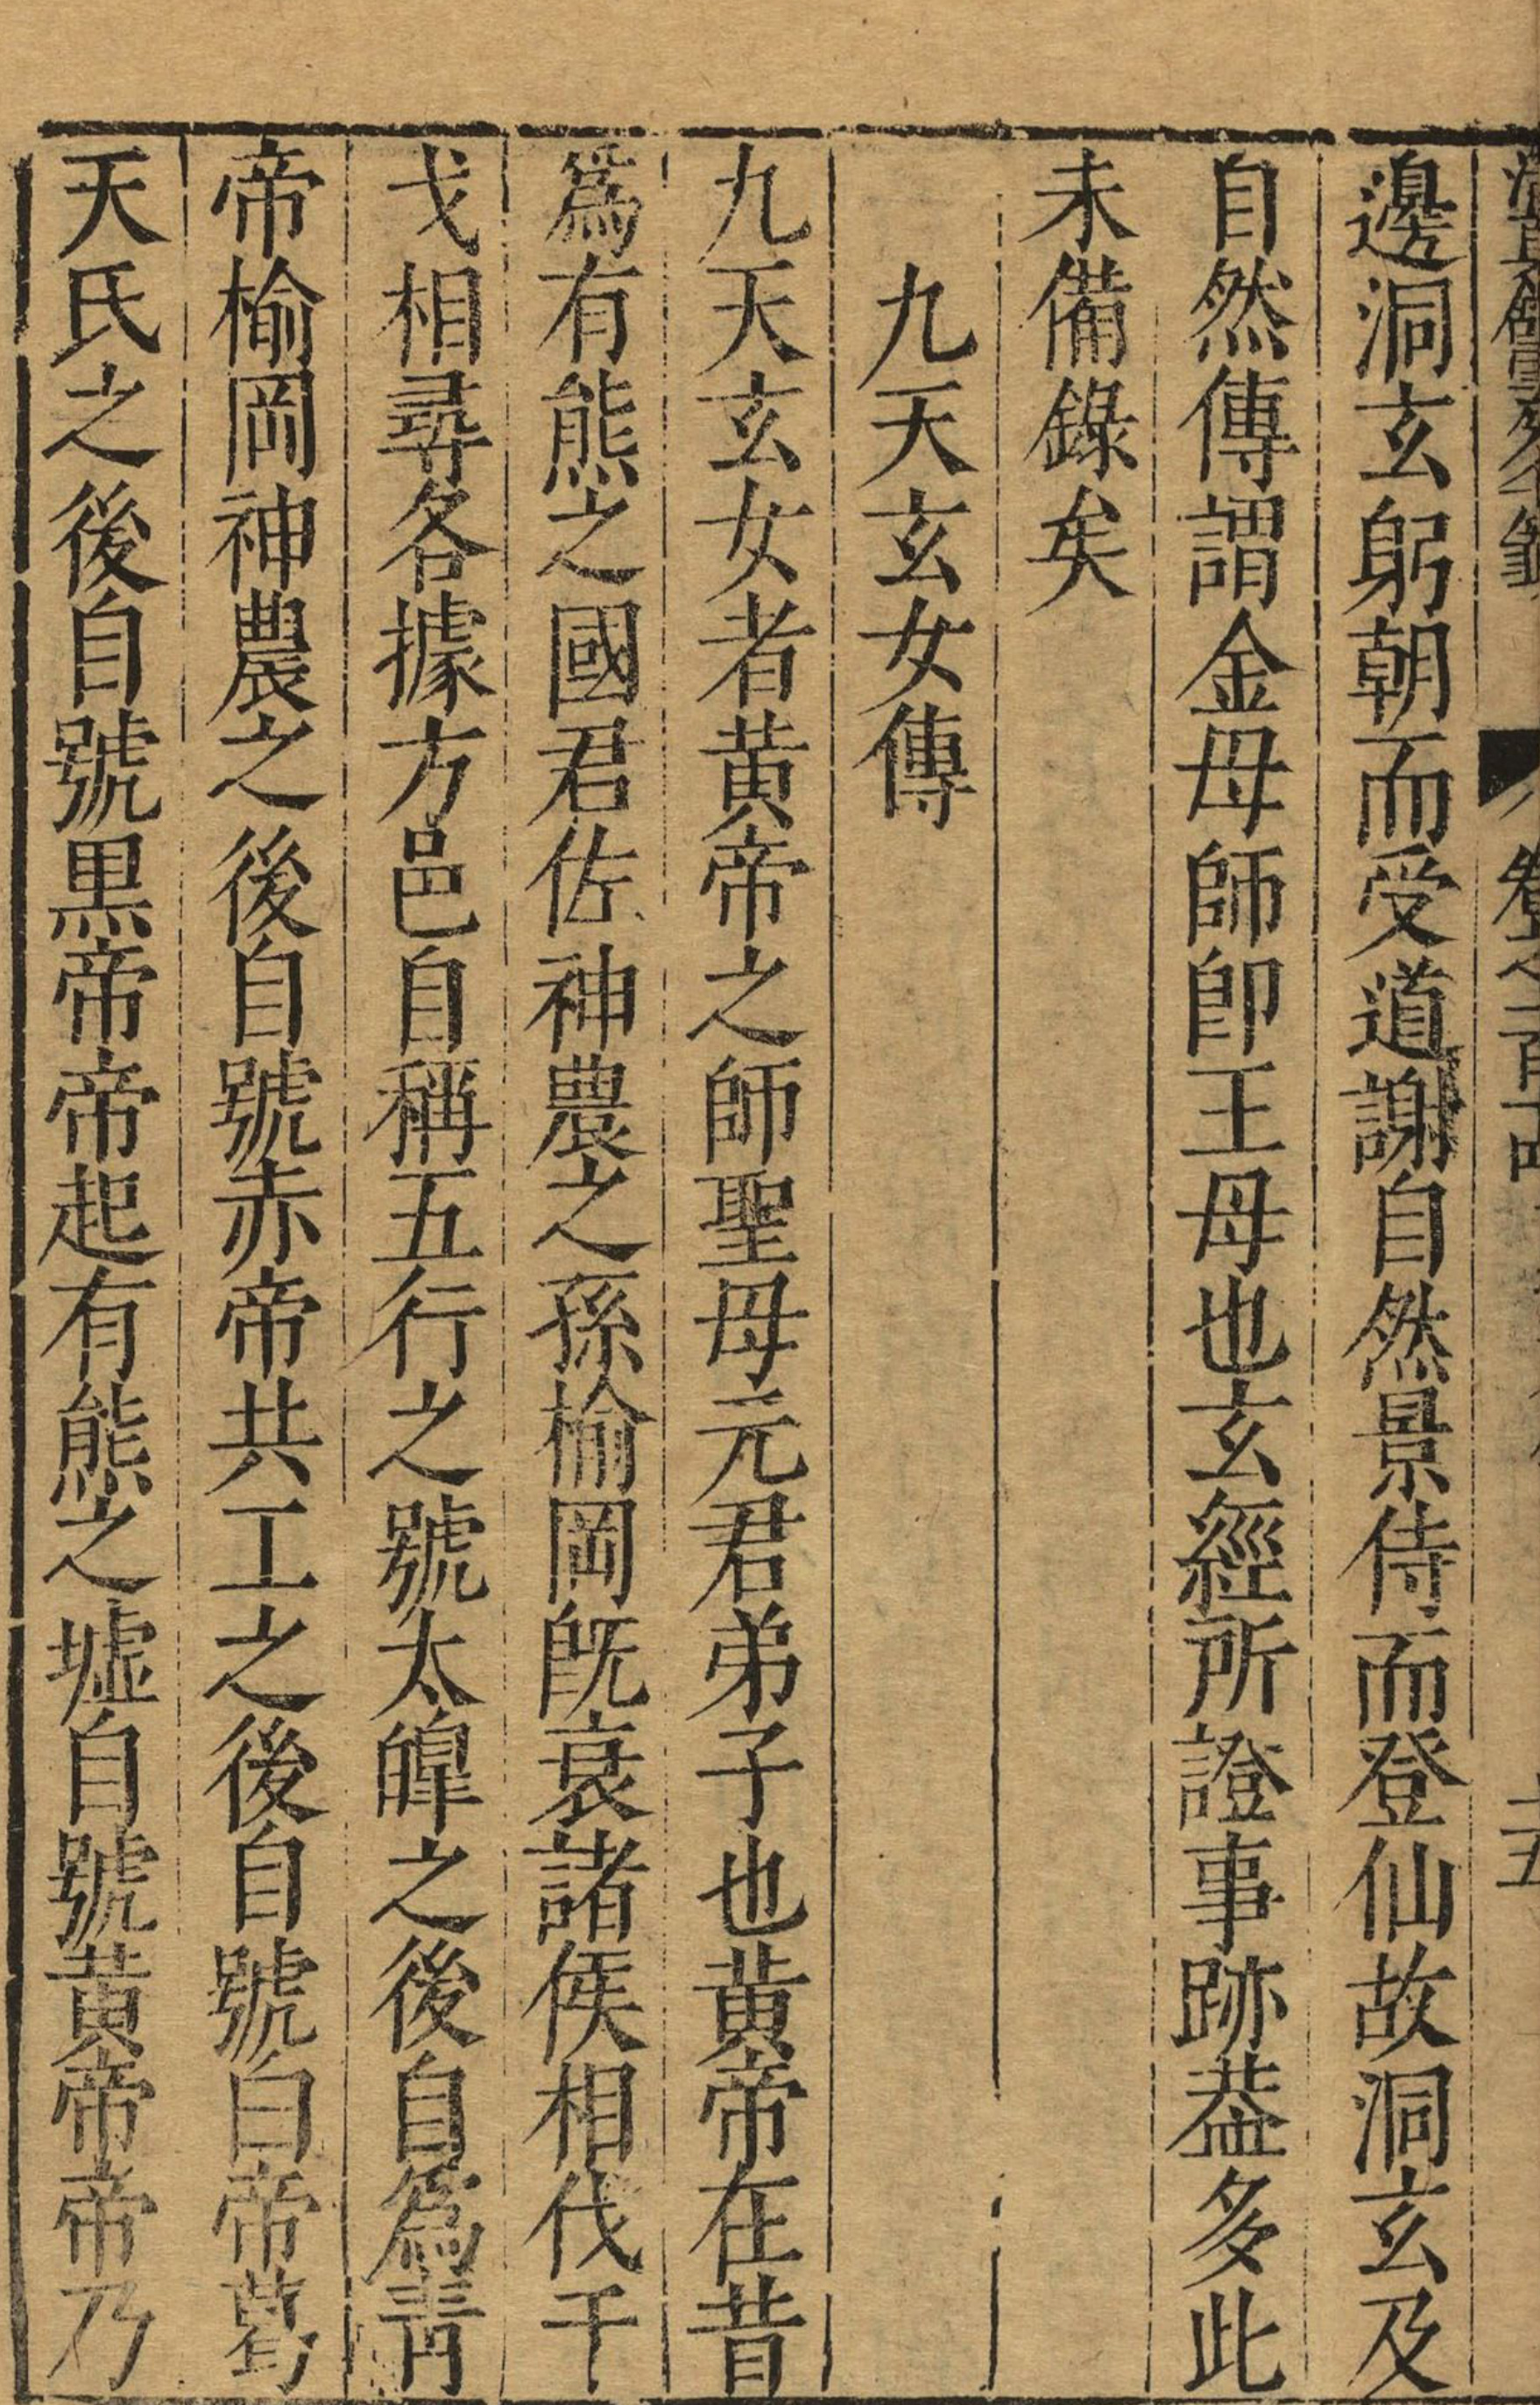 邊洞玄躬朝而受道謝自然景侍而登仙故洞玄及
自然傳謂金母師卽王母也玄經所證事跡葢多此
未備錄矣
九天玄女傳
九天玄女者黃帝之師聖母元君弟子也黃帝在昔
爲有熊之國君佐神農之孫榆岡旣衰諸侯相伐干
戈相尋各據方邑自稱五行之號太皥之後自爲靑
帝榆岡神農之後自號赤帝共工之後自號白帝葛
天氏之後自號黑帝帝起有熊之墟自號黃帝帝乃